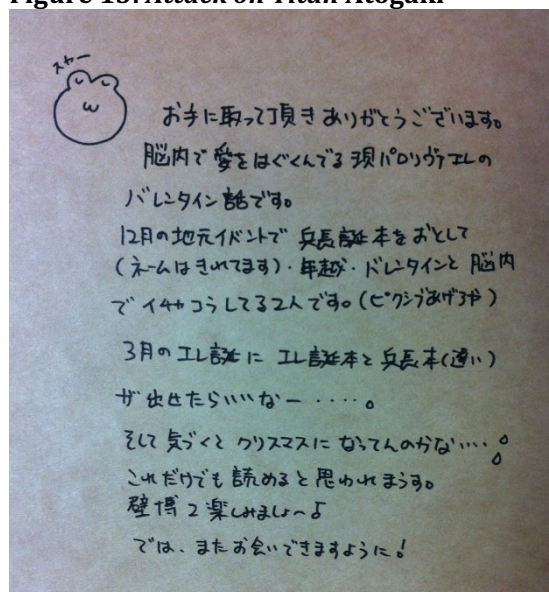 Figure 13. Attack on Titan Atogaki
スヤー
お手に取って頂きありがとうございます。
脳内で愛をはぐくんでる現パロリヴァエレの
バレンタイン話です。
12月の地元イベントで兵長誕本をおとして
(ネームはきれてます)・年越・バレンタインと脳内
でイチャコラしてる2人です。(ピクシブあげるや)
3月のエレ誕にエレ誕本と兵長本(遅い)
が出せたらいいなー・・・・。
そして気づくとクリスマスになってんのかな…。
これだけでも読めると思われまうす。
壁博2楽しみましょ〜♪
では、またお会いできますように!